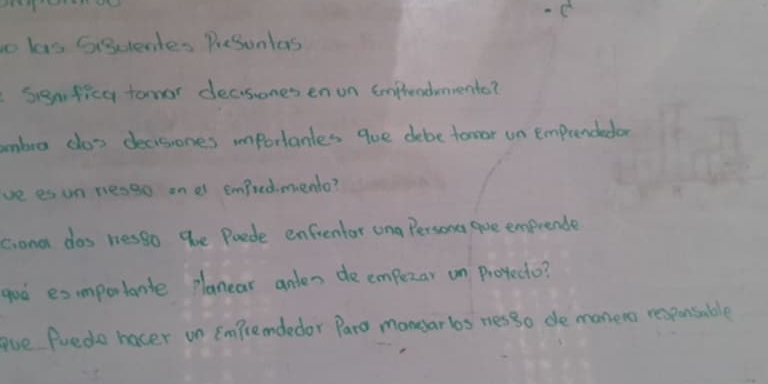 las Siguientes Preguntas
significa tomar decisiones en un emprendimiento?
ombra dos decisiones importantes que debe tomar un emprendedor
ve es un riesgo en el empredimiento?
ciona dos riesgo que puede enfrentar una Persona que emprende
qué es importante planear antes de empezar un proyecto?
que puedo hacer un emprendedor para manejar los riesgo de manera responsable